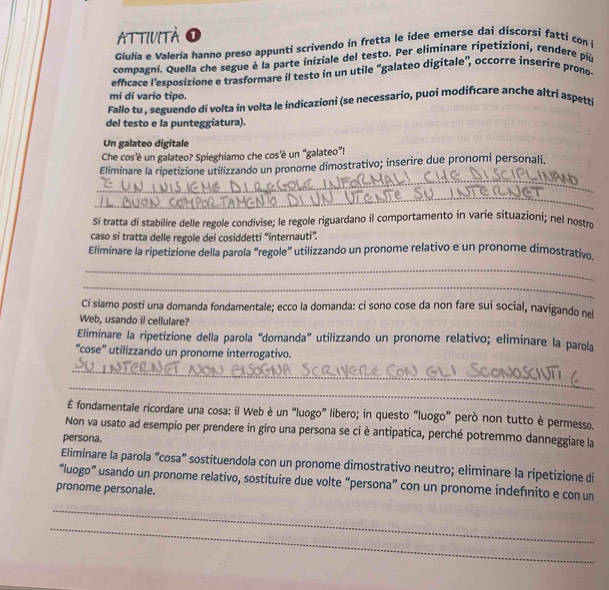 ATTIVITÀ 1
Giulia e Valeria hanno preso appunti scrivendo in fretta le idee emerse dai discorsi fatti con i
compagni. Quella che segue è la parte iniziale del testo. Per eliminare ripetizioni, rendere più
efficace l'esposizione e trasformare il testo in un utile "galateo digitale", occorre inserire prono-
mi di vario tipo.
Fallo tu, seguendo di volta in volta le indicazioni (se necessario, puoi modificare anche altri aspetti
del testo e la punteggiatura).
Un galateo digitale
Che cos'è un galateo? Spieghiamo che cos'è un "galateo"!
Eliminare la ripetizione utilizzando un pronome dimostrativo; inserire due pronomi personali.
È UN INISIEME DI REGOLE INFORMALI CHE DISCIPLINANO
IL BUON COMPORTAMENTO DI UN UTENTE SU INTERNET
Si tratta di stabilire delle regole condivise; le regole riguardano il comportamento in varie situazioni; nel nostro
caso si tratta delle regole dei cosiddetti "internauti".
Eliminare la ripetizione della parola "regole" utilizzando un pronome relativo e un pronome dimostrativo.
Ci siamo posti una domanda fondamentale; ecco la domanda: ci sono cose da non fare sui social, navigando nel
Web, usando il cellulare?
Eliminare la ripetizione della parola "domanda" utilizzando un pronome relativo; eliminare la parola
"cose" utilizzando un pronome interrogativo.
SU INTERNET NON BISOGNA SCRIVERE CON GLI SCONOSCIUTI
È fondamentale ricordare una cosa: il Web è un "luogo" libero; in questo "luogo" però non tutto è permesso.
Non va usato ad esempio per prendere in giro una persona se ci è antipatica, perché potremmo danneggiare la
persona.
Eliminare la parola "cosa" sostituendola con un pronome dimostrativo neutro; eliminare la ripetizione di
"luogo" usando un pronome relativo, sostituire due volte "persona" con un pronome indefinito e con un
pronome personale.